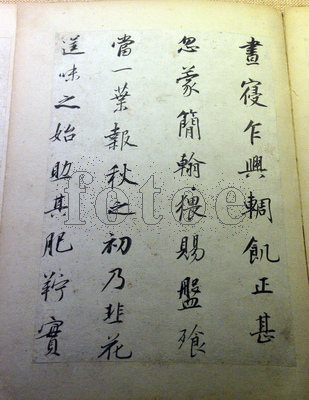 晝寢乍興輖飢正甚
忽蒙簡翰猥賜盤飧
當一葉報秋之初乃韭花
逞味之始助其肥羜實
fotoe